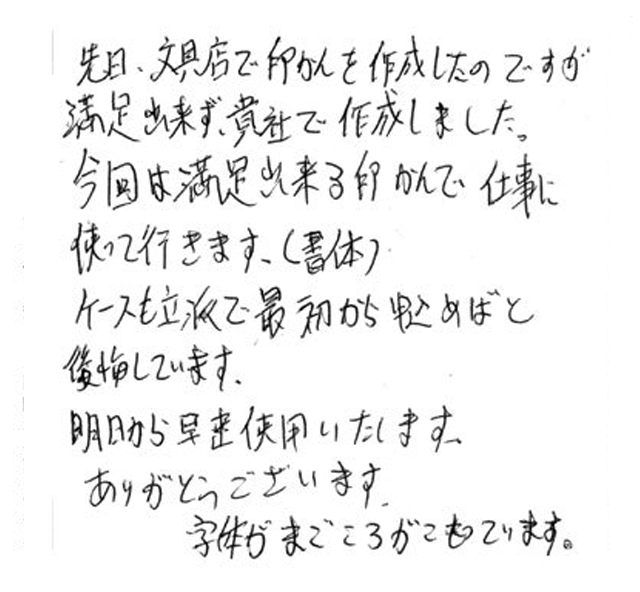 先日、文具店で印かんを作成したのですが
満足出来ず、貴社で作成しました。
今回は満足出来る印かんで仕事に
使って行きます、(書体)
ケースも立派で最初から申込めばと
後悔しています、
明日から早速使用いたします、
ありがとうございます、
字体がまごころがこもっています。